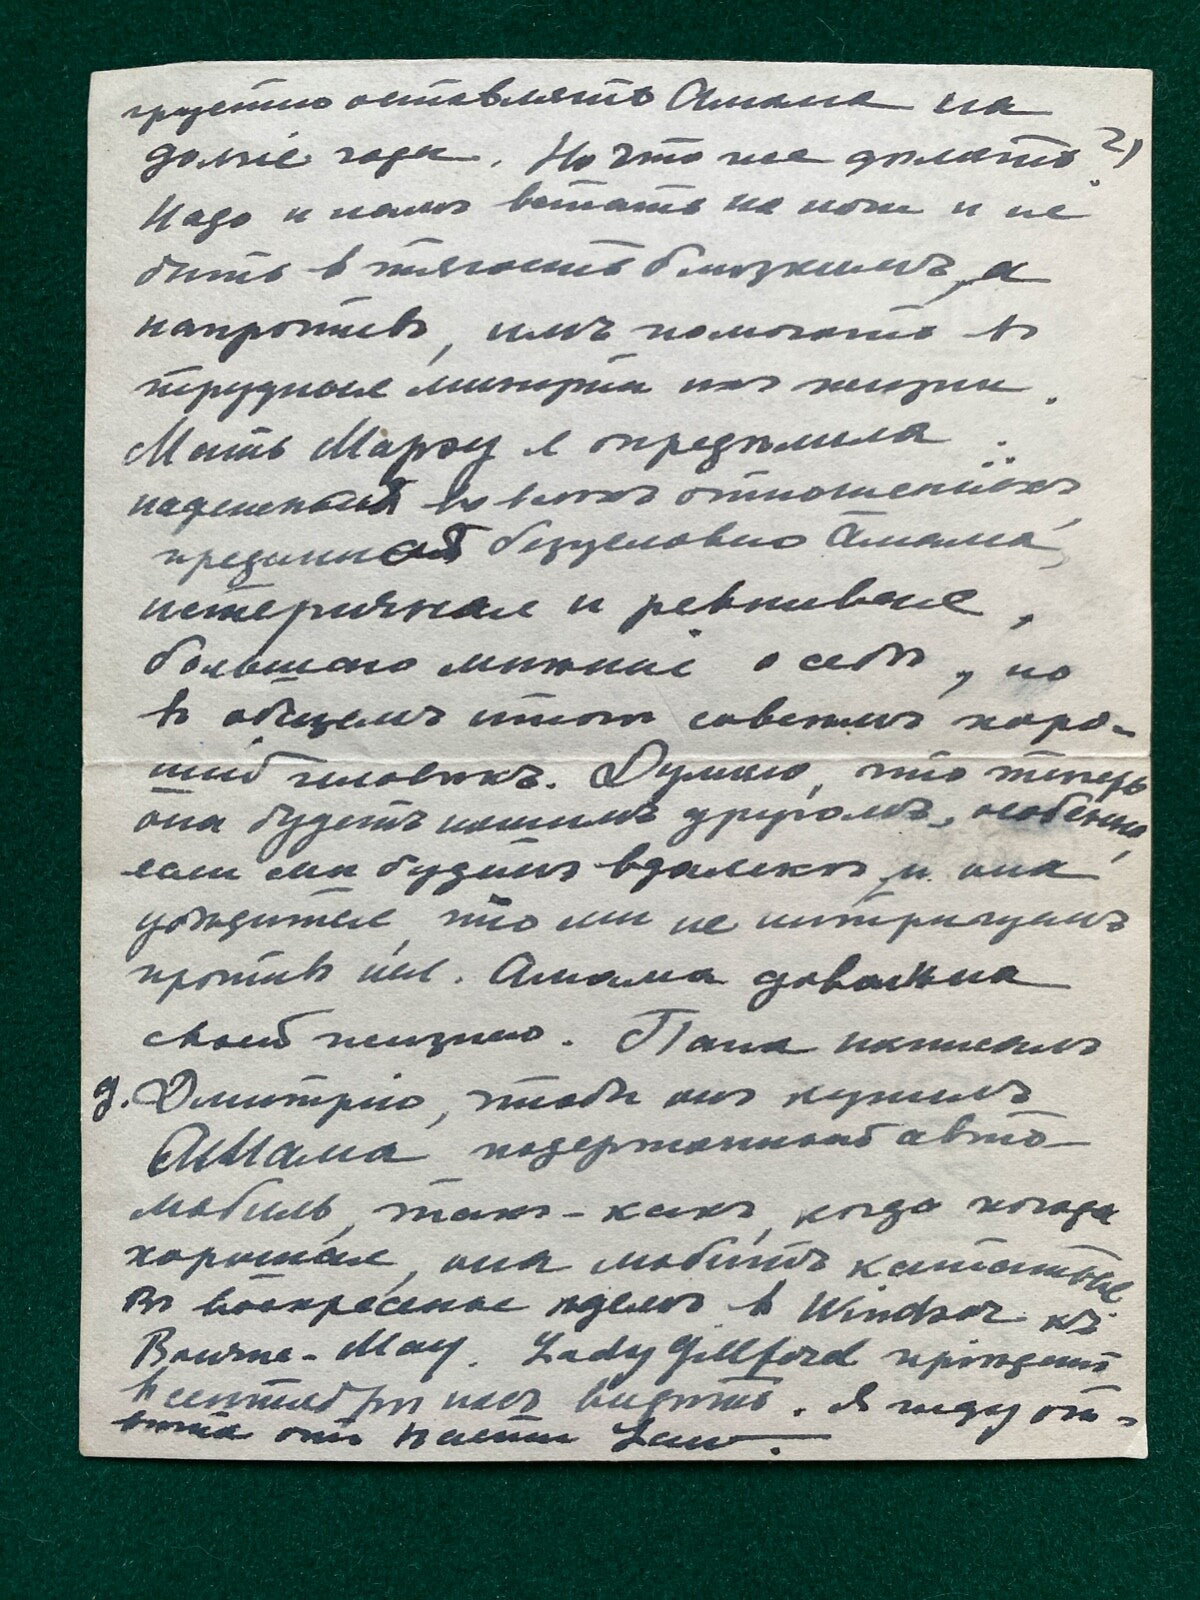 грустно оставлять Амама на
долгіе годы. Но что же дѣлать? 2)
Надо и намъ встать на ноги и не
быть в тягость близкимъ, а
напротивъ, имъ помогать въ
трудныя минуты ихъ жизни.
Мать Марѳу я опредѣлила
надежный во всѣхъ отношеніяхъ,
преданный безусловно Амама,
истеричная и ревнивая,
большаго мнѣнія о себѣ, но
в общемъ итогѣ совсѣмъ хоро-
шій человѣкъ. Думаю, что теперь
она будетъ нашимъ другомъ, особенно,
если мы будемъ вдалекѣ, и она
убѣдится, что мы не интригуемъ
противъ нея. Амама довольна
своей жизнью. Папа написалъ
д. Дмитрію, чтобы онъ купилъ
Амама подержанный авто-
мобиль, такъ-какъ, когда погода
хорошая, она любитъ кататься
Въ воскресенье ѣдемъ в Windsor къ
May. Lady Gillford пріѣдетъ
в сентябрѣ насъ видѣть. Я жду от-
вѣта отъ